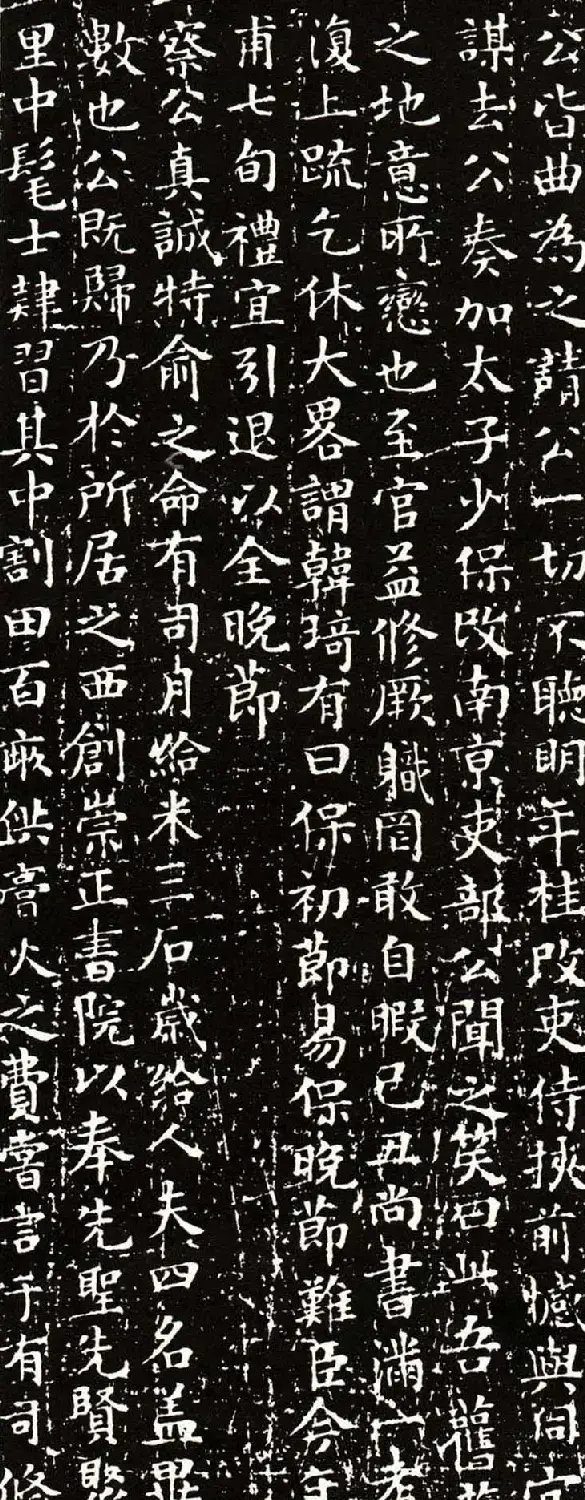 公皆曲為之請公一切不聽明年桂改吏侍挾前憾與同官
謀去公奏加太子少保改南京吏部公聞之笑曰此吾舊
之地意所戀也至官益修厥職罔敢自暇己丑尚書滿六考
復上疏乞休大畧謂韓琦有曰保初節易保晚節難臣今年
甫七旬禮宜引退以全晚節
察公真誠特俞之命有司月給米三石歲給人夫四名盖異
數也公既歸乃於所居之西創崇正書院以奉先聖先賢聚
里中髦士肄習其中割田百畝供膏火之費嘗言于有司修